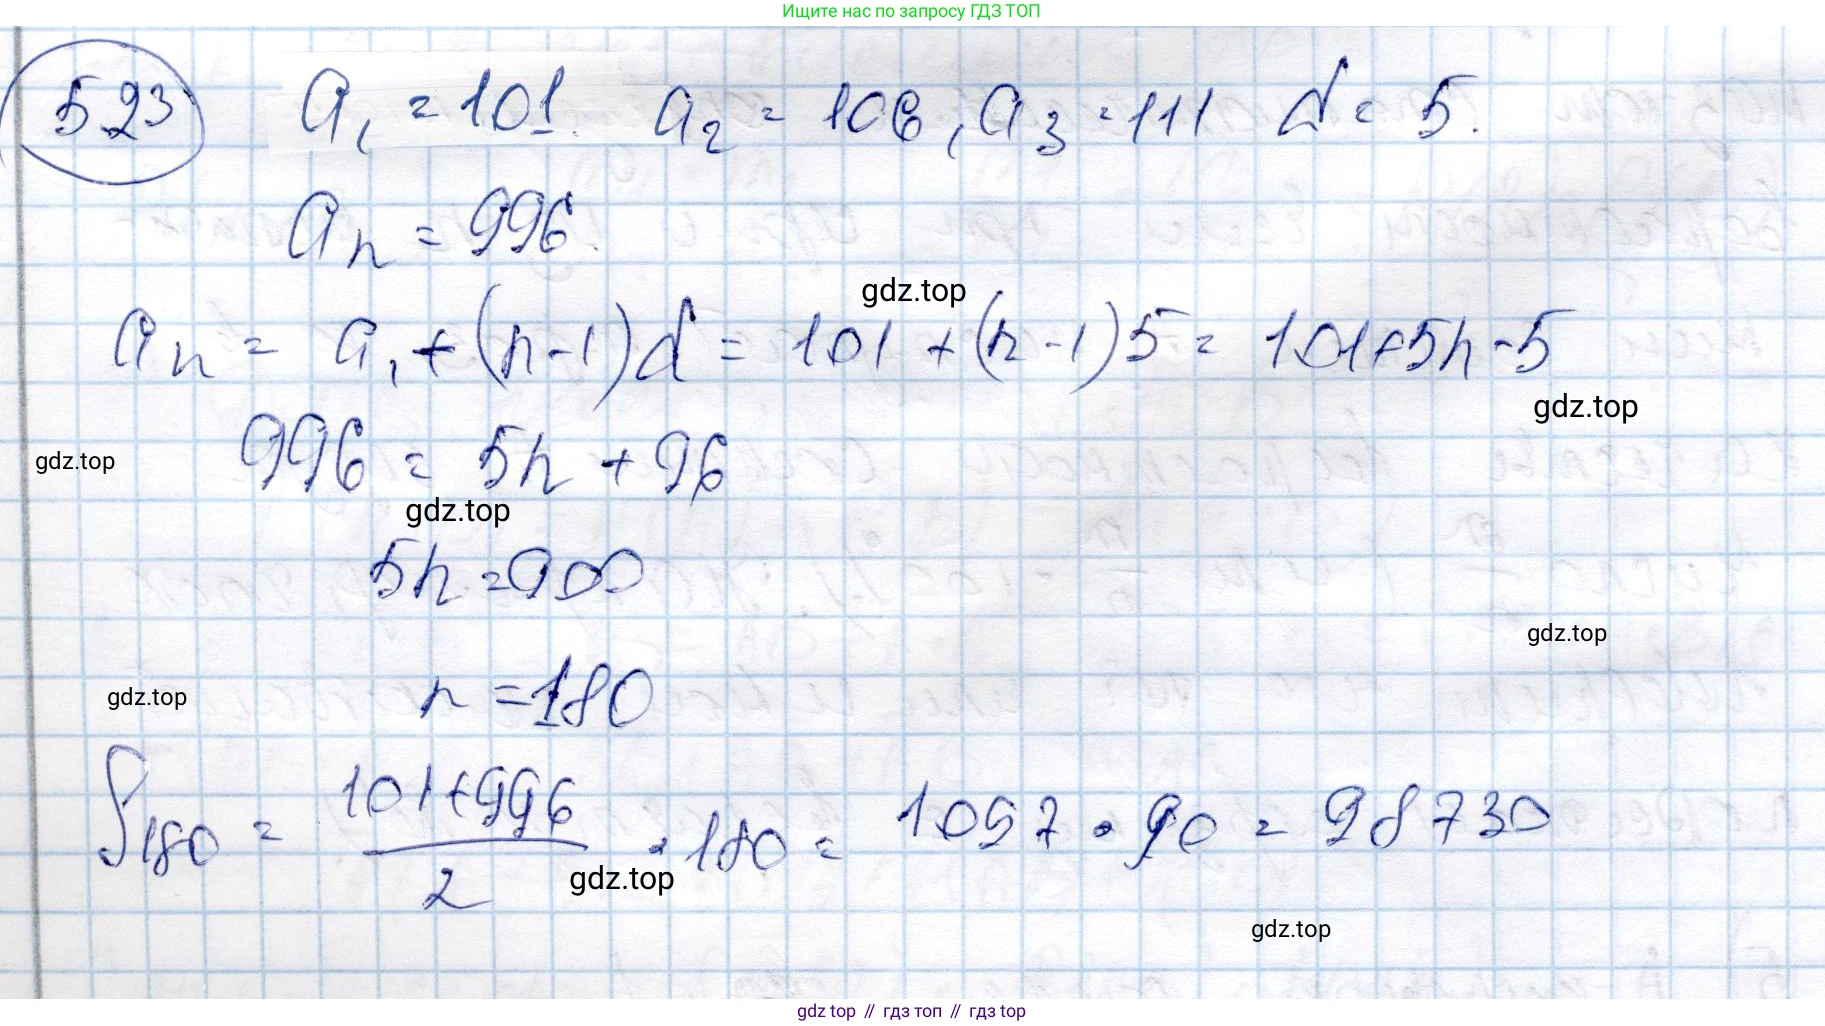 Ищите нас по запросу ГДЗ ТОП
523 a₁ = 101. a₂ = 106, a₃ = 111 d = 5.
aₙ = 996.
gdz.top
aₙ = a₁ + (n-1)d = 101 + (n-1)5 = 101+5n-5
gdz.top
996 = 5n + 96
gdz.top
gdz.top
5n = 900
gdz.top
n = 180
gdz.top
S₁₈₀ = \frac{101+996}{2} · 180 = 1097 · 90 = 98730
gdz.top
gdz.top
gdz top // гдз топ // гдз top